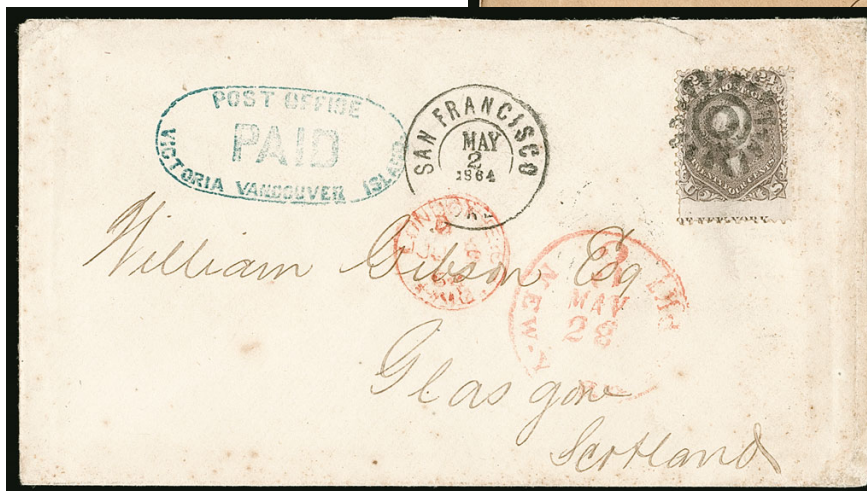 POST OFFICE
PAID
VICTORIA VANCOUVER ISLAND
SAN FRANCISCO
MAY
2
1864
24
24
U
S
William Gibson Esq
NEW
MAY
28
Glasgow
Scotland